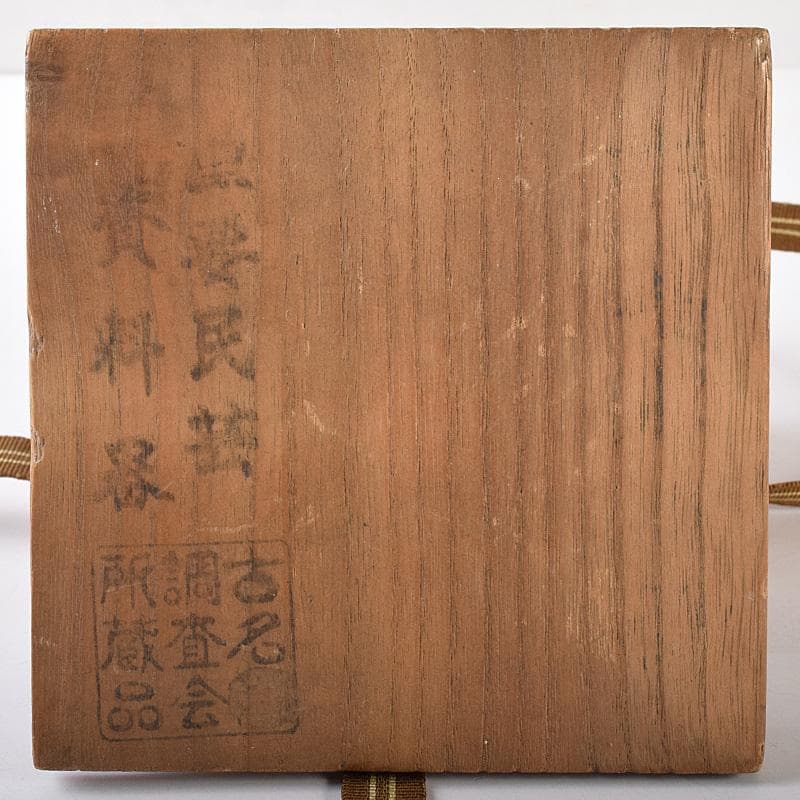 学民芸
資料器
古名
調査会
所蔵品